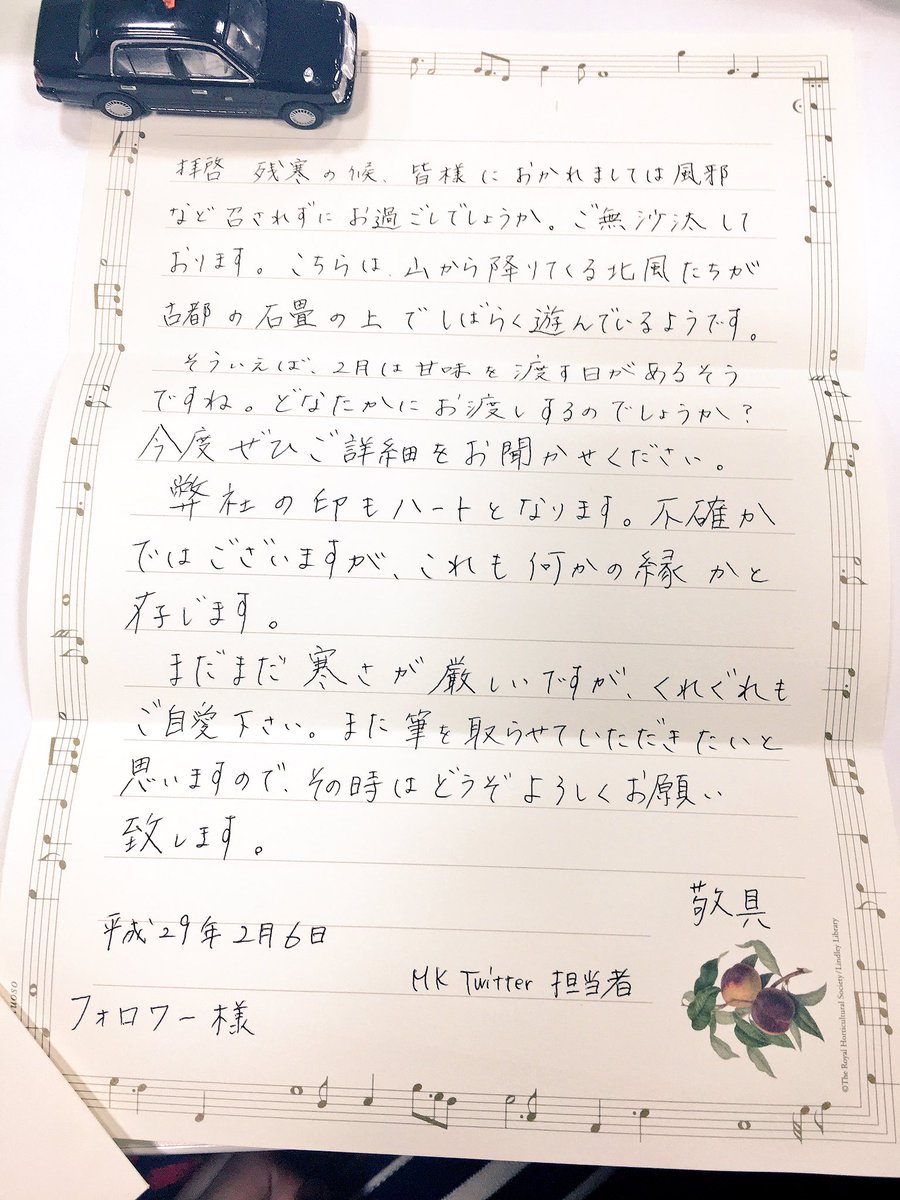 拝啓　残寒の候、皆様におかれましては風邪
など召されずにお過ごしでしょうか。ご無沙汰して
おります。こちらは、山から降りてくる北風たちが
古都の石畳の上でしばらく遊んでいるようです。
そういえば、2月は甘味を渡す日があるそう
ですね。どなたかにお渡しするのでしょうか?
今度ぜひご詳細をお聞かせください。
弊社の印もハートとなります。不確か
ではございますが、これも何かの縁かと
存じます。
まだまだ寒さが厳しいですが、くれぐれも
ご自愛下さい。また筆を取らせていただきたいと
思いますので、その時はどうぞよろしくお願い
致します。
敬具
平成29年2月6日
MK Twitter 担当者
フォロワー様
©The Royal Horticultural Society/Lindley Library